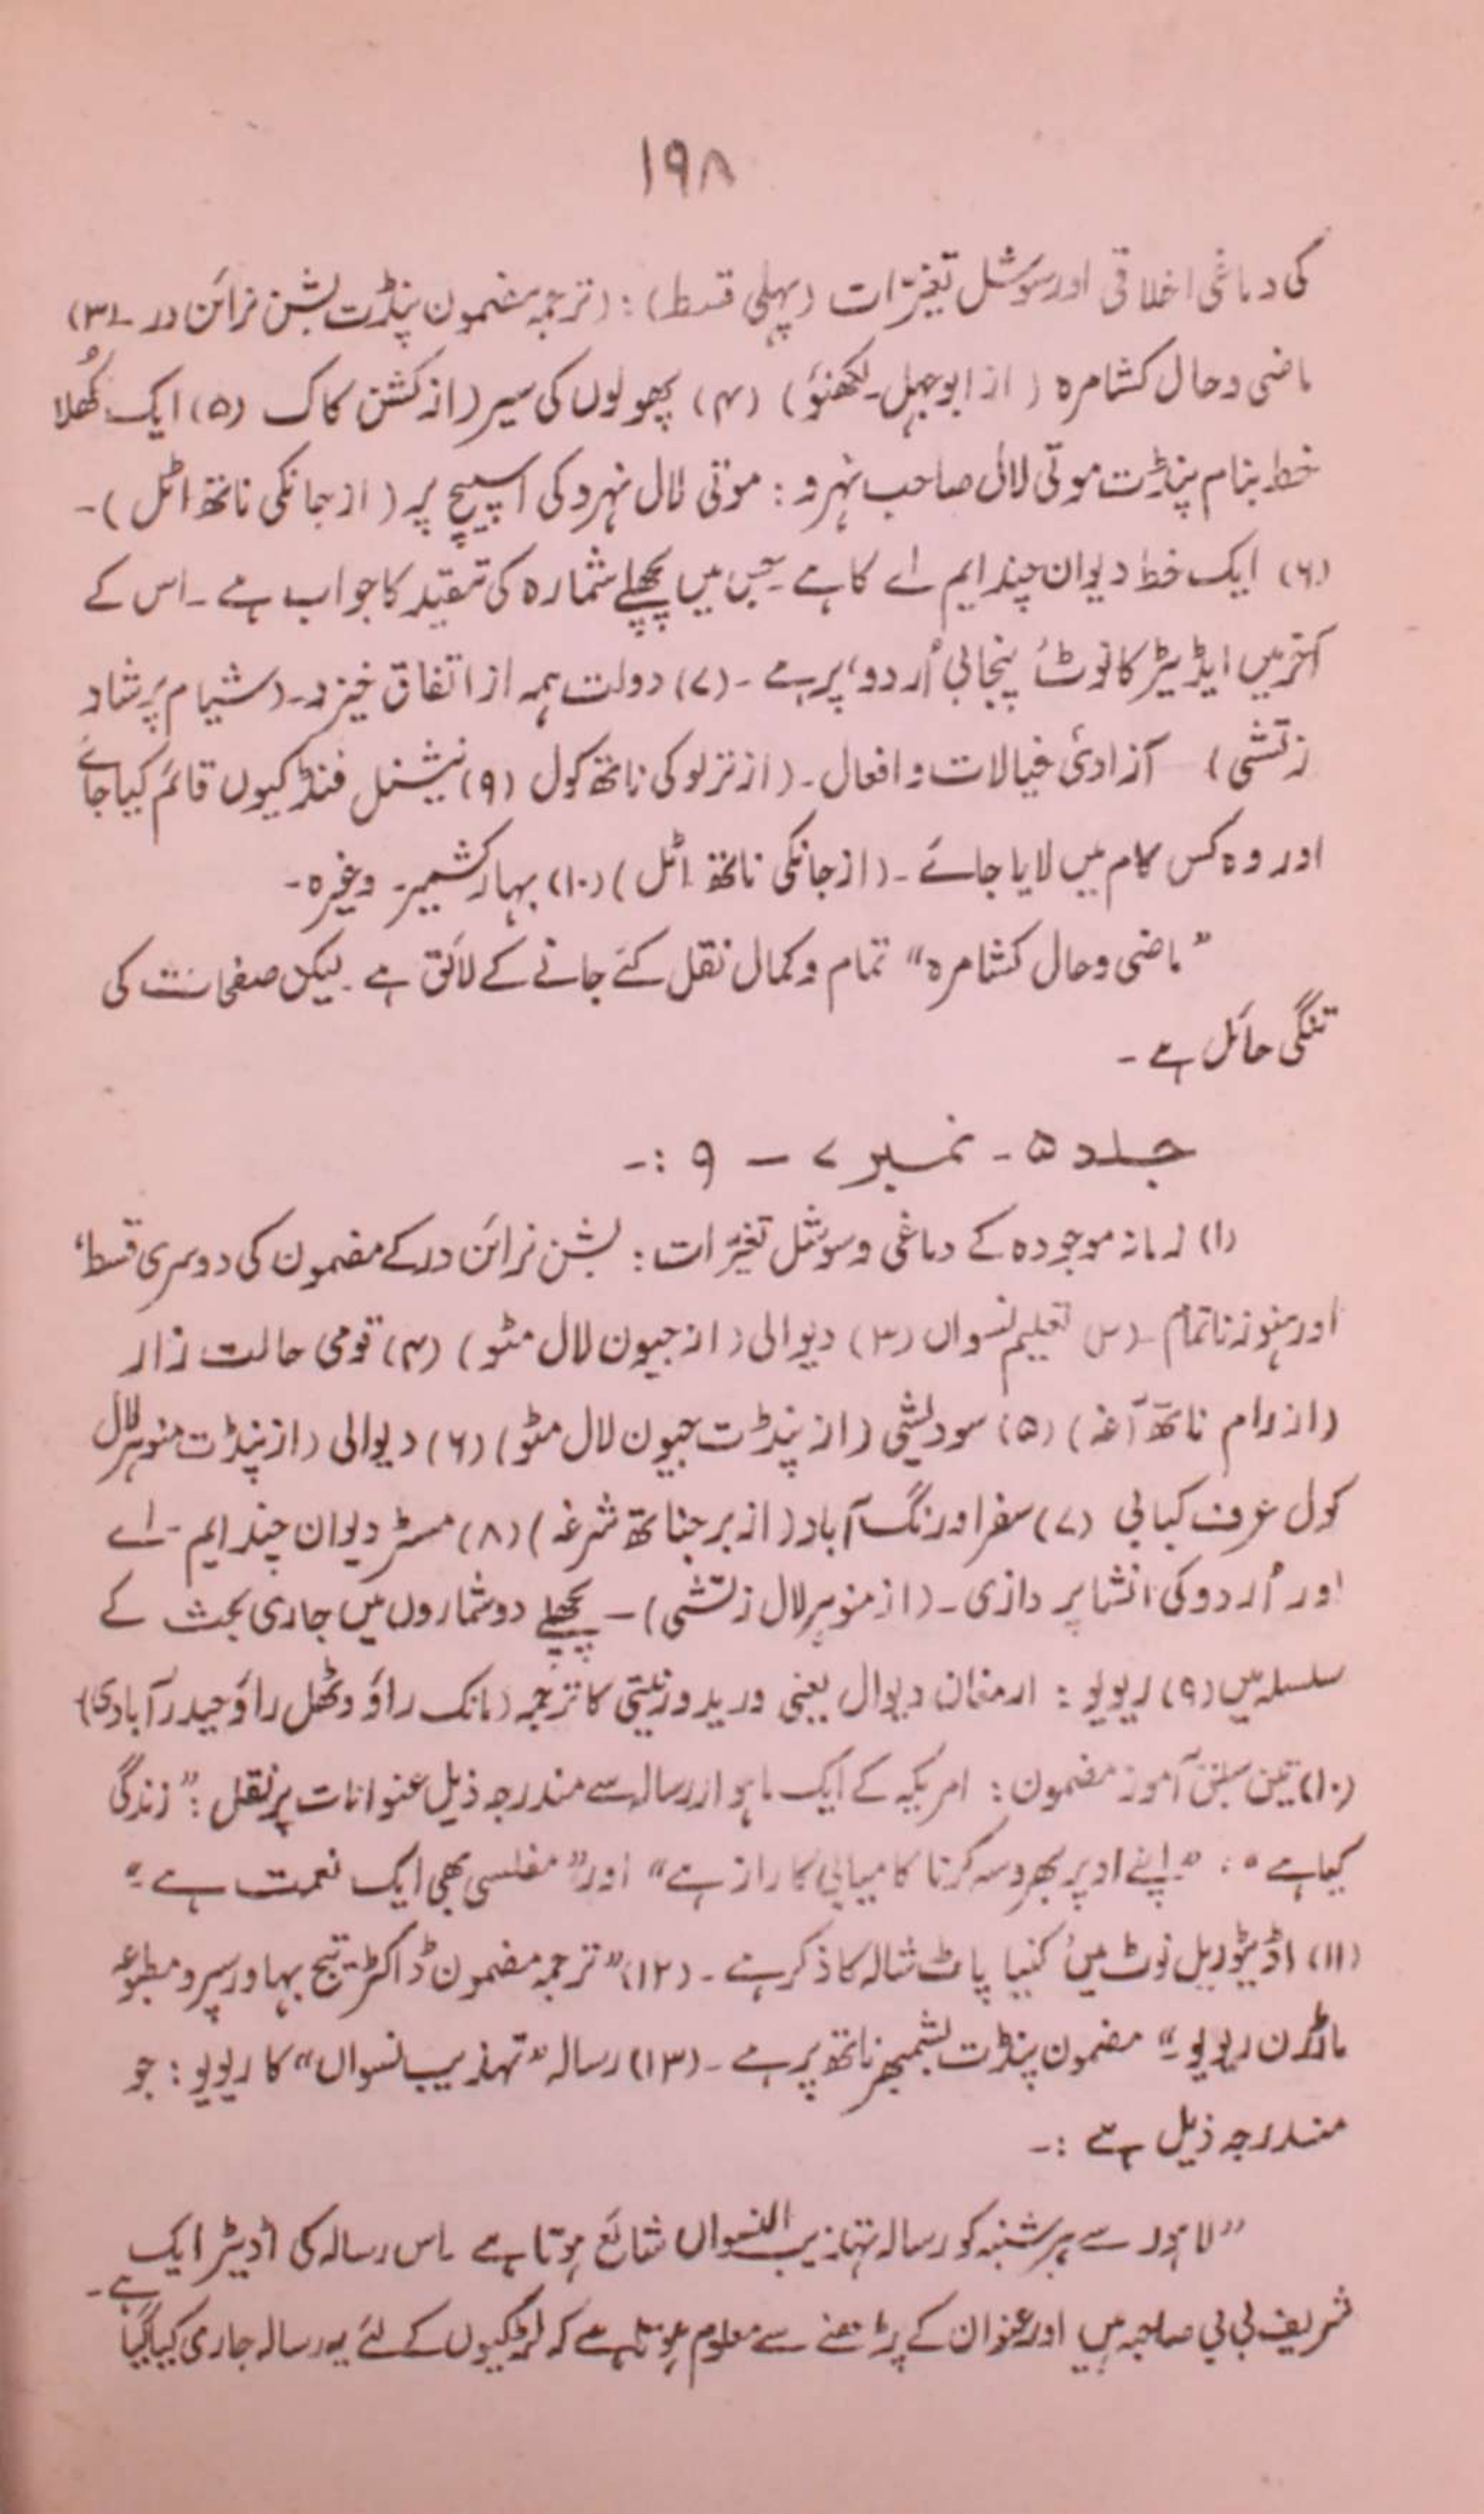 ۱۹۸
کی دماغی اخلاقی اور سوشل تغیّرات (پہلی قسط): (ترجمہ مضمون پنڈت بشن نرائن در۔ (۳)
ماضی و حال کشامرہ (از ابوجہل۔لکھنؤ) (۴) پھولوں کی سیر (از کشن کاک (۵) ایک کھُلا
خط بنام پنڈت موتی لال صاحب نہرو : موتی لال نہرو کی اسپیچ پر (از جانکی ناتھ اٹل)۔
(۶) ایک خط دیوان چند ایم اے کا ہے۔جس میں پچھلے شمارہ کی تنقید کا جواب ہے۔اس کے
آخر میں ایڈیٹر کا نوٹ ’پنجابی اُردو‘ پر ہے۔(۷) دولت ہمہ از اتفاق خیزد۔(شیام پرشاد
زتشی) آزادیٔ خیالات و افعال۔(از ترلوکی ناتھ کول (۹) نیشنل فنڈ کیوں قائم کیا جائے
اور وہ کس کام میں لایا جائے۔(از جانکی ناتھ اٹل) (۱۰) بہار کشمیر۔ وغیرہ۔
”ماضی و حال کشامرہ“ تمام و کمال نقل کئے جانے کے لائق ہے۔لیکن صفحات کی
تنگی حائل ہے۔
جلد ۵۔ نمبر ۷ – ۹ :۔
(۱) زمانہ موجودہ کے دماغی و سوشل تغیّرات : بشن نرائن در کے مضمون کی دوسری قسط‘
اور ہنوز ناتمام۔(۲) تعلیم نسواں (۳) دیوالی (از جیون لال مٹو) (۴) قومی حالت زار
(از رام ناتھ آغہ) (۵) سودیشی (از پنڈت جیون لال مٹو) (۶) دیوالی (از پنڈت منوہر لال
کول عرف کبابی (۷) سفر اورنگ آباد (از برجناتھ شرغہ) (۸) مسٹر دیوان چند ایم۔اے
اور اُردو کی انشا پردازی۔(از منوہر لال زتشی)۔پچھلے دو شماروں میں جاری بحث کے
سلسلہ میں (۹) ریویو : ارمغان دیوال یعنی ورید و زیتی کا ترجمہ (مانک راؤ وٹھل راؤ حیدرآبادی)
(۱۰) تین سبق آموز مضمون : امریکہ کے ایک ماہوار رسالہ سے مندرجہ ذیل عنوانات پر نقل : ”زندگی
کیا ہے“، ”اپنے اوپر بھروسہ کرنا کامیابی کا راز ہے“ اور ”مفلسی بھی ایک نعمت ہے“۔
(۱۱) اڈیٹوریل نوٹ میں کنیا پاٹ شالہ کا ذکر ہے۔(۱۲) ”ترجمہ مضمون ڈاکٹر تیج بہادر سپرو مطبوعہ
ماڈرن ریویو۔“ مضمون پنڈت بشمبھر ناتھ پر ہے۔(۱۳) رسالہ ”تہذیب نسواں“ کا ریویو : جو
مندرجہ ذیل ہے :۔
”لاہور سے ہر شنبہ کو رسالہ تہذیب النسواں شائع ہوتا ہے۔اس رسالہ کی اڈیٹر ایک
شریف بی بی صاحبہ ہیں اور عنوان کے پڑھنے سے معلوم ہوتا ہے کہ لڑکیوں کے لئے یہ رسالہ جاری کیا گیا ہے۔